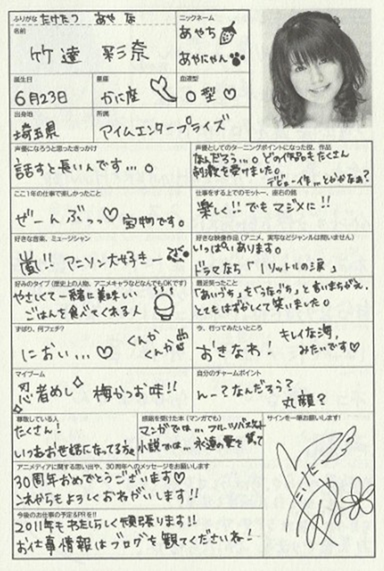 ふりがな たけたつ あやな
名前
竹達 彩奈
ニックネーム
あやち
あやにゃん
誕生日
6月23日
星座
かに座
血液型
O型♡
出身地
埼玉県
所属
アイムエンタープライズ
声優になろうと思ったきっかけ
話すと長いんです…。
声優としてのターニングポイントになった役、作品
なんだろう…。どの作品もたくさん
刺激を受けました。
デビュー作…とかかなぁ?
ここ1年の仕事で楽しかったこと
ぜーんぶっっ♡宝物です。
仕事をする上でのモットー、座右の銘
楽しく!!でもマジメに!!
好きな音楽、ミュージシャン
嵐!! アニソン大好きー
好きな映像作品(アニメ、実写などジャンルは問いません)
いっぱいあります。
ドラマなら「1リットルの涙」
好みのタイプ(歴史上の人物、アニメキャラなどなんでもOKです)
やさしくて一緒に美味しい
ごはんを食べてくれる人
最近笑ったこと
「あいづち」を「うなづち」と言いまちがえ、
とてもはずかしくて笑いました。
ずばり、何フェチ?
におい…♡
くんか
くんか
今、行ってみたいところ
おきなわ! キレイな海、
みたいです♡
マイブーム
忍者めし 梅かつお味!!
自分のチャームポイント
んー?なんだろう?
丸顔?
尊敬している人
たくさん!
いつもお世話になってる方々
感銘を受けた本(マンガでも)
マンガでは…フルーツバスケット
小説では…永遠の愛を誓って
サインを一筆お願いします!
アニメディアに関する思い出や、30周年へのメッセージをお願いします
30周年おめでとうございます♡
これからもよろしくおねがいします!!
今後のお仕事の予定&PRを!!
2011年もやさしく頑張ります!!
お仕事情報はブログを観てくださいね!